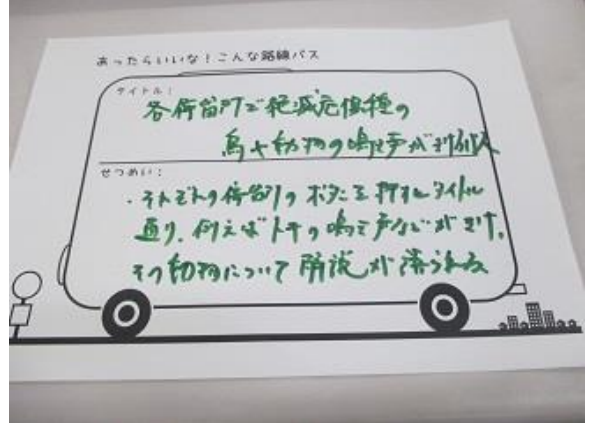 あったらいいな！こんな路線バス
タイトル：
各停留所で絶滅危惧種の
鳥や動物の鳴き声が
せつめい：
・それぞれの停留所のボタンを押すとタイトル
通り、例えばトキの鳴き声などがきけ、
その動物について解説が